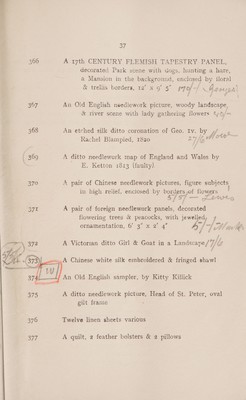 37
366 A 17th CENTURY FLEMISH TAPESTRY PANEL,
decorated Park scene with dogs, hunting a hare,
a Mansion in the background, enclosed by floral
& trellis borders, 12' x 9' 5"
367 An Old English needlework picture, woody landscape,
& river scene with lady gathering flowers
368 An etched silk ditto coronation of Geo. IV. by
Rachel Blampied, 1820
369 A ditto needlework map of England and Wales by
E. Ketton 1813 (faulty)
370 A pair of Chinese needlework pictures, figure subjects
in high relief, encased by borders of flowers
371 A pair of foreign needlework panels, decorated
flowering trees & peacocks, with jewelled
ornamentation, 6' 3" x 2' 4"
372 A Victorian ditto Girl & Goat in a Landscape
373 A Chinese white silk embroidered & fringed shawl
374 An Old English sampler, by Kitty Killick
375 A ditto needlework picture, Head of St. Peter, oval
gilt frame
376 Twelve linen sheets various
377 A quilt, 2 feather bolsters & 2 pillows